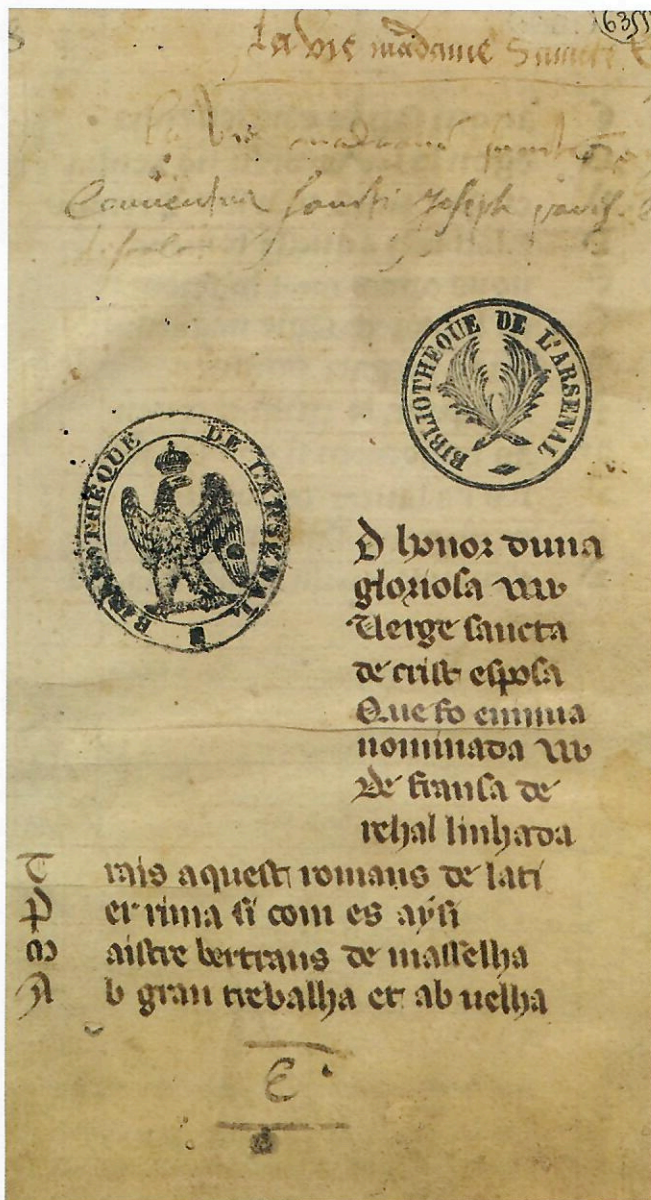 6355
La vie madame Saincte
La Vie madame
Conventus sancti Joseph
BIBLIOTHEQUE DE L'ARSENAL
BIBLIOTHEQUE DE L'ARSENAL
A honor duna
gloriosa
Verge sancta
de crist esposa
Que fo enimia
nominada
De fransa de
rehal linhada
T rais aquest romans de lati
P er rima si com es aysi
M aistre bertrans de masselha
A b gran trebalha et ab uelha
E